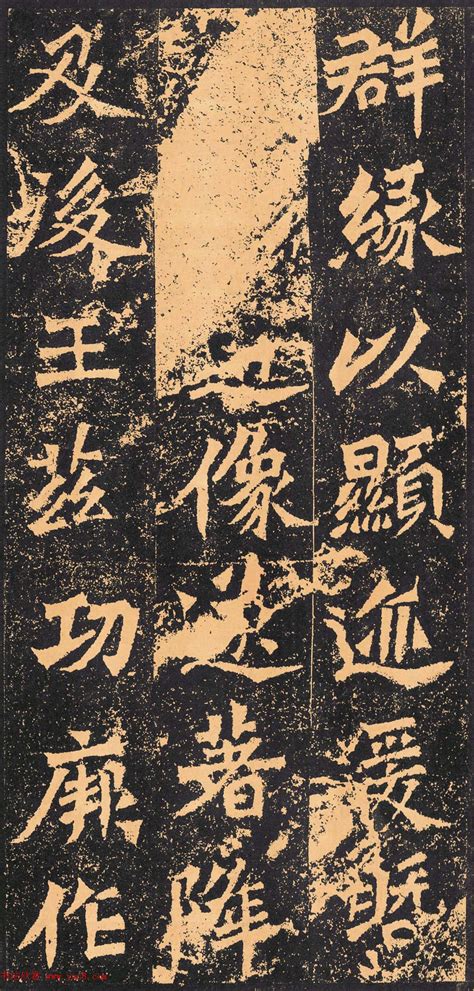 群緣以顯迹爰暨
像遂著降
及後王兹功厥作